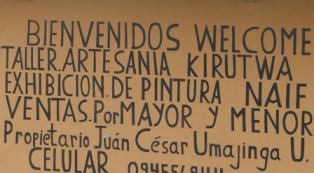 BIENVENIDOS WELCOME
TALLER.ARTESANIA KIRUTWA
EXHIBICION.DE PINTURA NAIF
VENTAS.PorMAYOR y MENOR
Propietario Juán César Umajinga U.
CELULAR